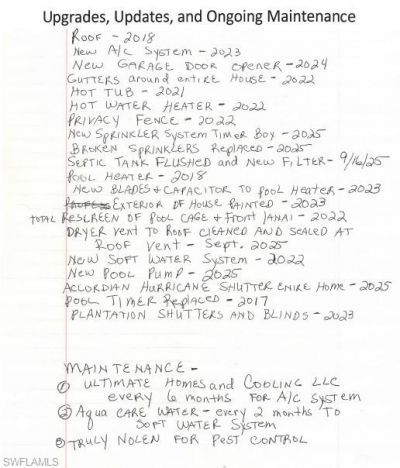 Upgrades, Updates, and Ongoing Maintenance
ROOF - 2018
New A/C System - 2023
New GARAGE DOOR opener - 2024
GUTTERS around entire House - 2022
HOT TUB - 2021
HOT WATER HEATER - 2022
PRIVACY FENCE - 2022
New SPRINKLER SYSTEM Timer Box - 2025
BROKEN SPRINKLERS Replaced - 2025
SEPTIC TANK FLUSHED and New FILTER - 9/16/25
POOL HEATER - 2018
NEW BLADES + CAPACITOR TO POOL HEATER - 2023
EXTERIOR OF HOUSE PAINTED - 2023
TOTAL RESCREEN OF POOL CAGE + FRONT LANAI - 2022
DRYER VENT TO ROOF CLEANED AND SEALED AT
ROOF VENT - Sept. 2025
NEW SOFT WATER SYSTEM - 2022
New POOL PUMP - 2025
ACCORDIAN HURRICANE SHUTTER ENIRE HOME - 2025
POOL TIMER REPLACED - 2017
PLANTATION SHUTTERS AND BLINDS - 2023
MAINTENANCE -
① ULTIMATE HOMES and COOLING LLC
every 6 months FOR A/C SYSTEM
② Aqua CARE WATER - every 2 months TO
SOFT WATER SYSTEM
③ TRULY NOLEN FOR PEST CONTROL
SWFLAMLS